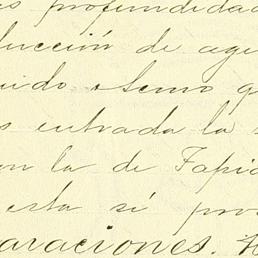 s profundidad
ducción de agu
uido. Semo q
s entrada la s
on la de Tapia
esta sí pro
araciones. H